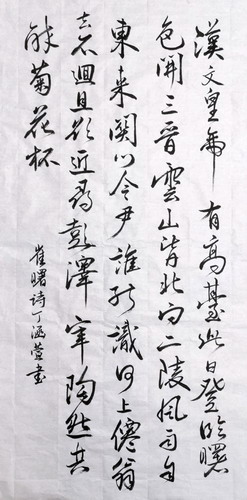 漢文皇帝有高臺此日登临曙
色開三晉雲山皆北向二陵風雨自
東来関门令尹誰能識河上僊翁
去不迴且欲近尋彭澤宰陶然共
醉菊花杯
崔曙诗丁涵萱書